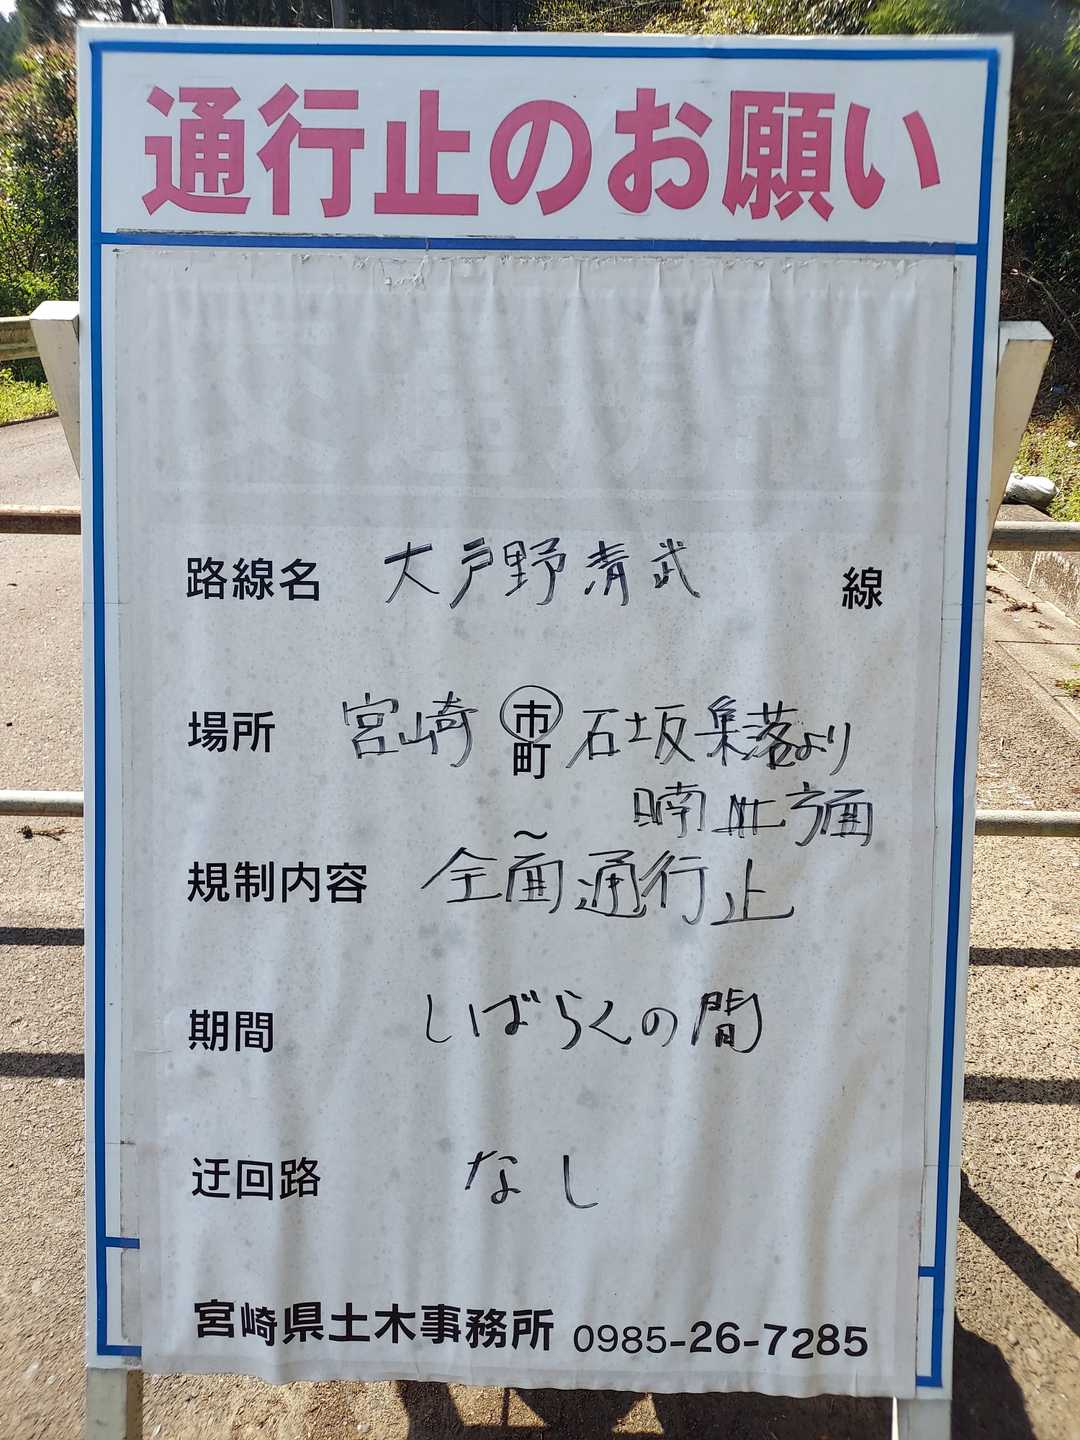 通行止のお願い
路線名 大戸野清武 線
場所 宮崎 市 町 石坂集落より
日南北方面
規制内容 全面通行止
期間 しばらくの間
迂回路 なし
宮崎県土木事務所 0985-26-7285